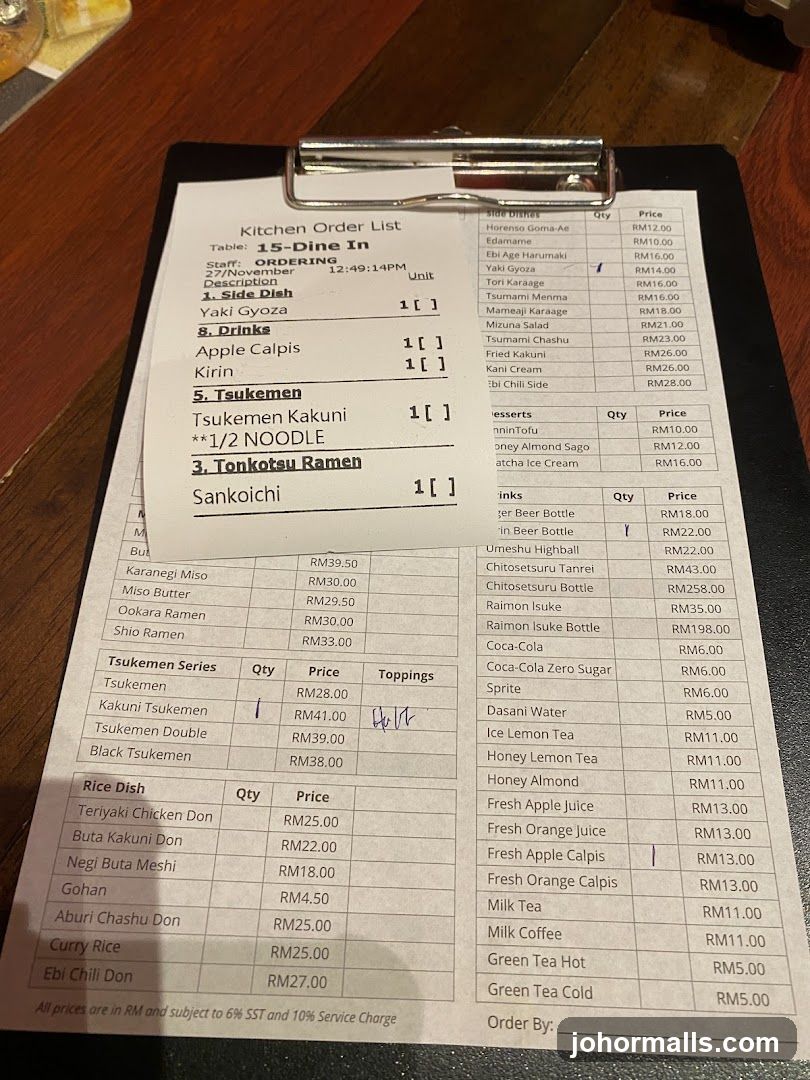 Kitchen Order List
Table: 15-Dine In
Staff: ORDERING
27/November 12:49:14PM
Description Unit
1. Side Dish
Yaki Gyoza 1 [ ]
8. Drinks
Apple Calpis 1 [ ]
Kirin 1 [ ]
5. Tsukemen
Tsukemen Kakuni 1 [ ]
**1/2 NOODLE
3. Tonkotsu Ramen
Sankoichi 1 [ ]
RM39.50
Karanegi Miso RM30.00
Miso Butter RM29.50
Ookara Ramen RM30.00
Shio Ramen RM33.00
Tsukemen Series Qty Price Toppings
Tsukemen RM28.00
Kakuni Tsukemen 1 RM41.00 Half
Tsukemen Double RM39.00
Black Tsukemen RM38.00
Rice Dish Qty Price
Teriyaki Chicken Don RM25.00
Buta Kakuni Don RM22.00
Negi Buta Meshi RM18.00
Gohan RM4.50
Aburi Chashu Don RM25.00
Curry Rice RM25.00
Ebi Chili Don RM27.00
All prices are in RM and subject to 6% SST and 10% Service Charge
Side Dishes Qty Price
Horenso Goma-Ae RM12.00
Edamame RM10.00
Ebi Age Harumaki RM16.00
Yaki Gyoza 1 RM14.00
Tori Karaage RM16.00
Tsumami Menma RM16.00
Mameaji Karaage RM18.00
Mizuna Salad RM21.00
Tsumami Chashu RM23.00
Fried Kakuni RM26.00
Kani Cream RM26.00
Ebi Chili Side RM28.00
esserts Qty Price
nninTofu RM10.00
oney Almond Sago RM12.00
atcha Ice Cream RM16.00
rinks Qty Price
ger Beer Bottle RM18.00
rin Beer Bottle 1 RM22.00
Umeshu Highball RM22.00
Chitosetsuru Tanrei RM43.00
Chitosetsuru Bottle RM258.00
Raimon Isuke RM35.00
Raimon Isuke Bottle RM198.00
Coca-Cola RM6.00
Coca-Cola Zero Sugar RM6.00
Sprite RM6.00
Dasani Water RM5.00
Ice Lemon Tea RM11.00
Honey Lemon Tea RM11.00
Honey Almond RM11.00
Fresh Apple Juice RM13.00
Fresh Orange Juice RM13.00
Fresh Apple Calpis 1 RM13.00
Fresh Orange Calpis RM13.00
Milk Tea RM11.00
Milk Coffee RM11.00
Green Tea Hot RM5.00
Green Tea Cold RM5.00
Order By:
johormalls.com